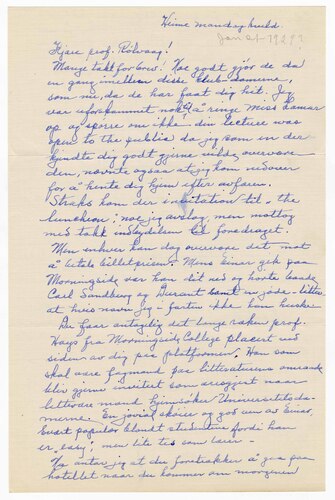 Hjime mandag kveld.
Jan 21-1929?
Kjære prof. Rölvaag!
Mange takk for brev! Hoe godt gjör de da
en gang imellem disse club-damene,
som nu, da de har faat dig hit. Jeg
var uforskammet nok å ringe Miss Lamar
op og spörre om ikke din lecture was
open to the public da jeg som en der
kjendte dig godt gjerne vilde overvære
den, nævnte ogsaa at jeg kom nedover
for å hente dig hjem efter affæren.
Straks kom der invitation til the
luncheon; noe jeg avslog, men mottog
med takk indbydelsen til foredraget.
Men enhver kan dog overvære det mot
å betale billetprisen. Mens Einar gik paa
Morningside var han tit ned og hörte baade
Carl Sandburg og Durant
at huske
Du faar antagelig det lange raken prof.
Hays fra Morningside College plasert ved
siden av dig paa platformen. Han som
skal være fagmand paa litteraturens omraade
blir gjerne invitert som æresgjest naar
litterære mænd hjemsöker Universitets da-
merne. En jovial skøier og god ven av Einar.
Svært populær blandt studentene fordi han
er "easy"; men lite tes som lærer -
Jeg antar jeg at du foretrækker å gaa paa
hotellet naar du kommer om morgenen